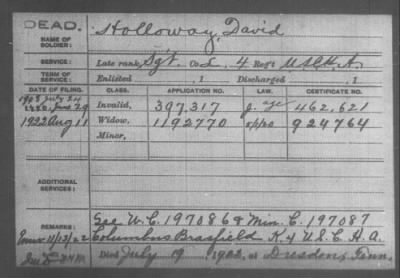 DEAD.
Holloway, David
NAME OF SOLDIER:
SERVICE: Late rank, Sgt. Co. L, 4 Reg't U.S.C.H.A.
TERM OF SERVICE: Enlisted , 1 Discharged , 1
DATE OF FILING. CLASS. APPLICATION NO. LAW. CERTIFICATE NO.
1908 July 24
June 29 Invalid, 397,317 462,621
1922 Aug 11 Widow, 1192770 924764
Minor,
ADDITIONAL SERVICES:
REMARKS: See W.C. 197086 & Min. C. 197087
11/13/22 Columbus Brasfield K, 4 U.S.C.H.A.
Died July 19 1922, at Dresden, Tenn.